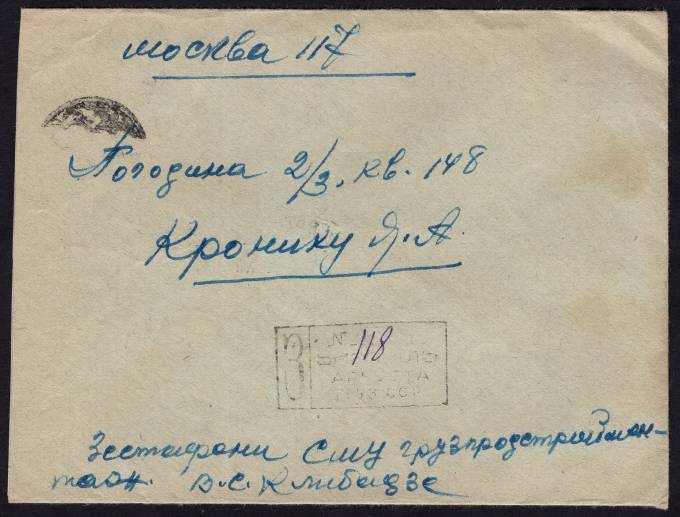 Москва 117
Погодина 2/3. кв. 148
Кронику Я. А.
З
118
ССР
Зестафони СМУ грузпродстроймон-
таж. В. С. Климбадзе